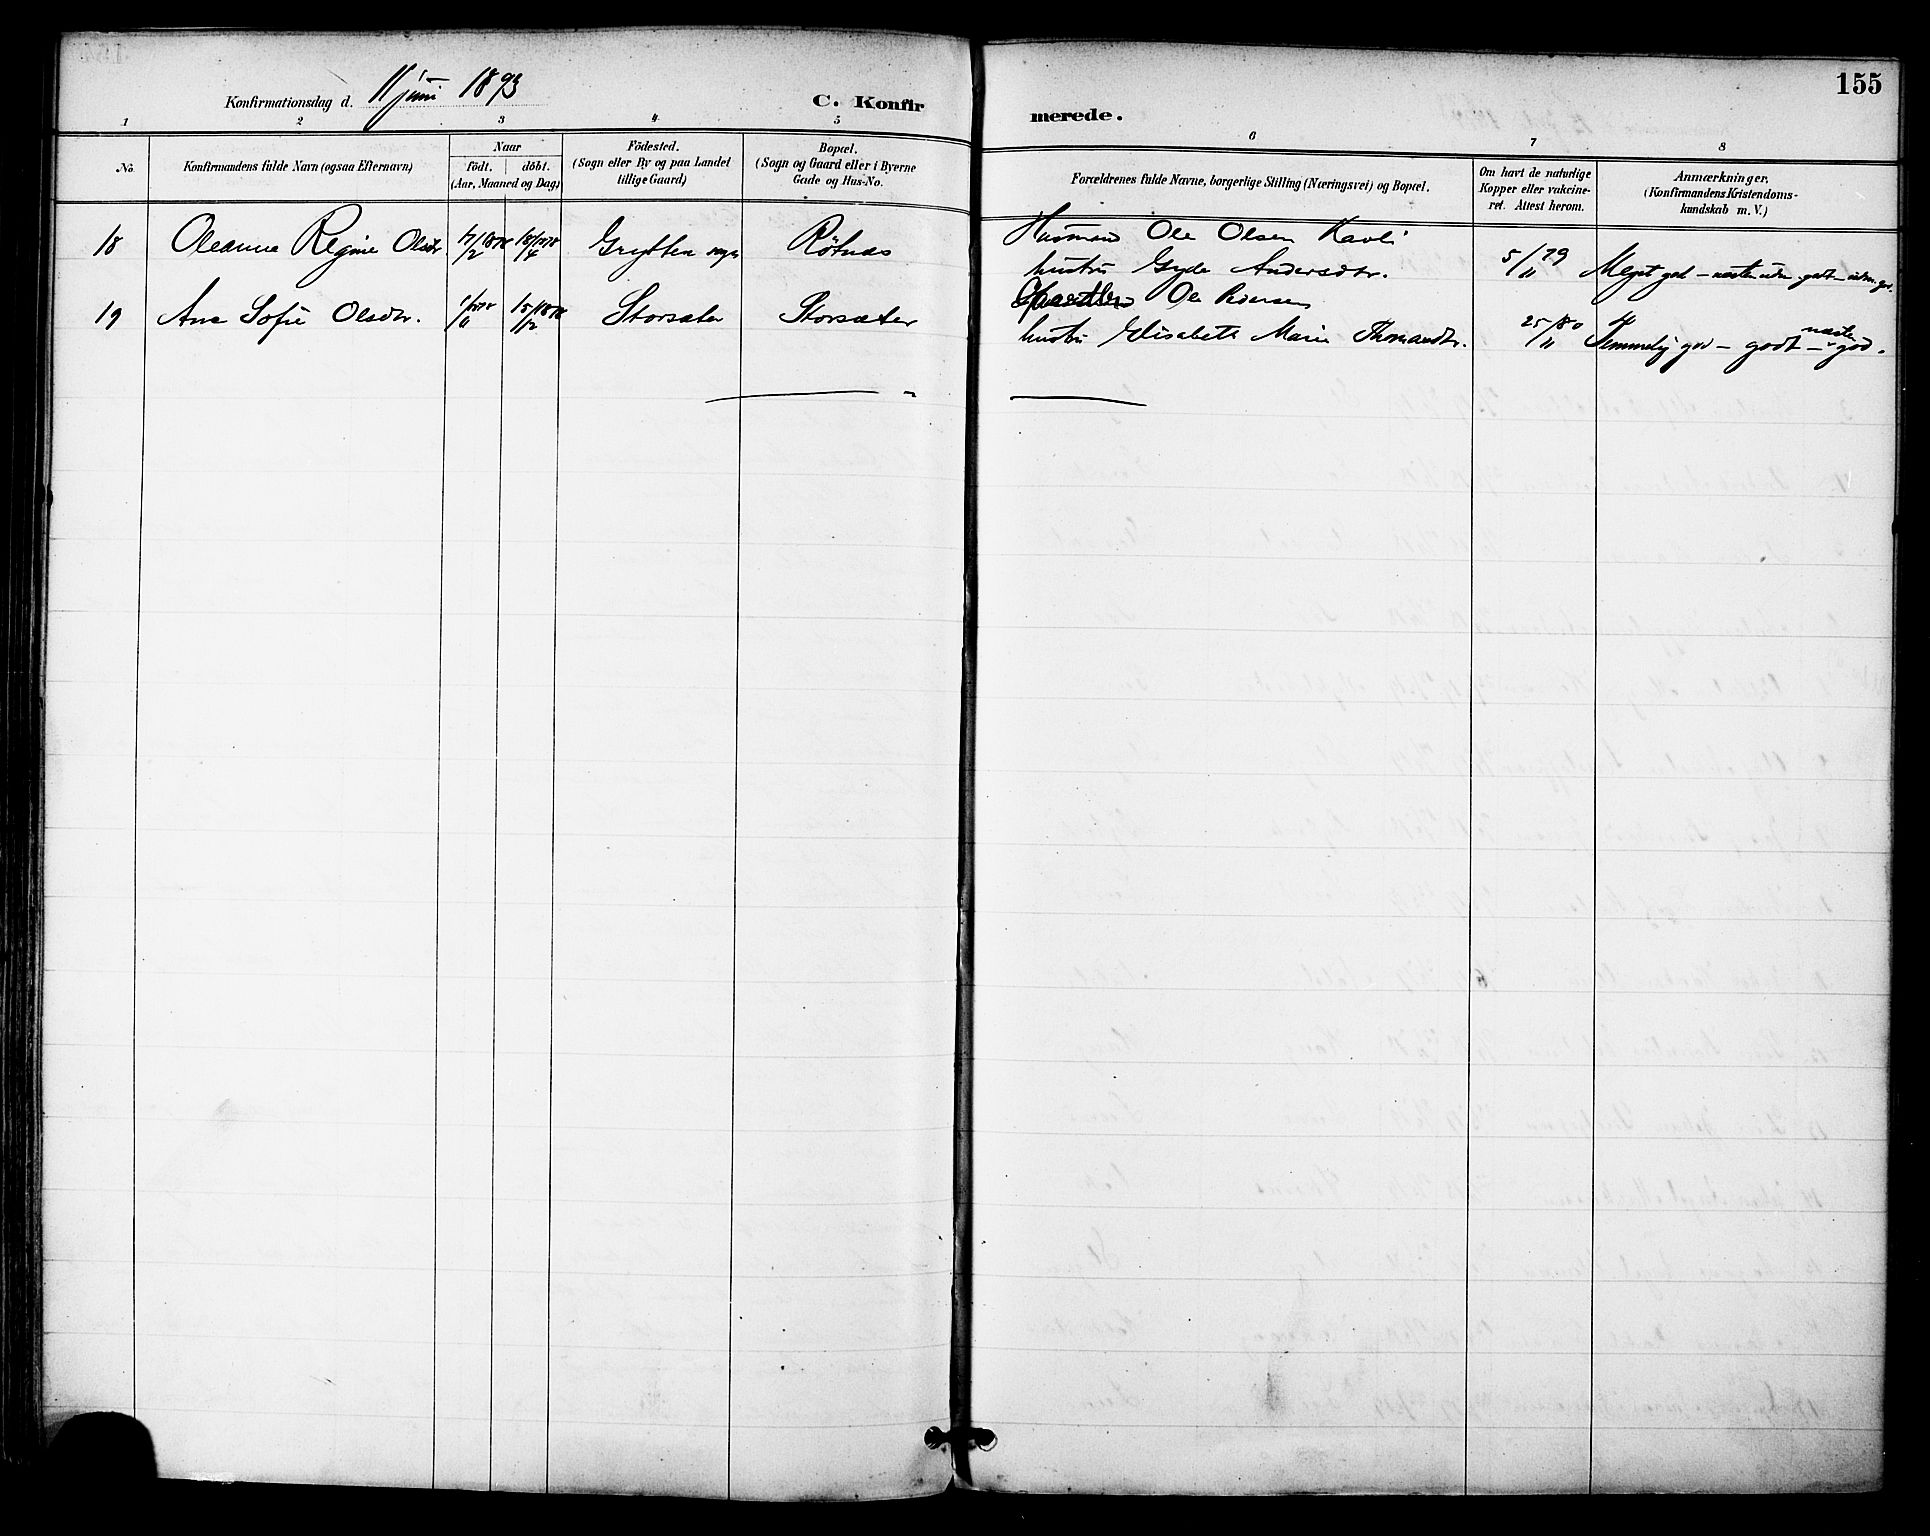 155
Konfirmationsdag d. 11 juni 1893
C. Konfir
merede.
1 2 3 4 5 6 7 8
No.
Konfirmandens fulde Navn (ogsaa Efternavn)
Naar
födt. döbt.
(Aar, Maaned og Dag)
Födested.
(Sogn eller By og paa Landet
tillige Gaard)
Bopæl.
(Sogn og Gaard eller i Byerne
Gade og Hus-No.
Forældrenes fulde Navne, borgerlige Stilling (Næringsvei) og Bopæl.
Om havt de naturlige
Kopper eller vakcine-
ret. Attest herom.
Anmærkninger.
(Konfirmandens Kristendoms-
kundskab m. V.)
18 Oleanna Regine Olsdr. 17/2 1878 18/4 1878 Grytten Rötnæs Husmand Ole Olsen Kavli
hustru Gyda Andersdtr. 5/11 79 Meget god – næsten udm. godt – udm. god.
19 Ane Sofie Olsdtr. 1/11 1878 15/12 1878 Storsæter Storsæter Ole Pedersen
hustru Elisabeth Marie Thomasdtr. 25/11 80 Temmelig god – godt – næsten god.